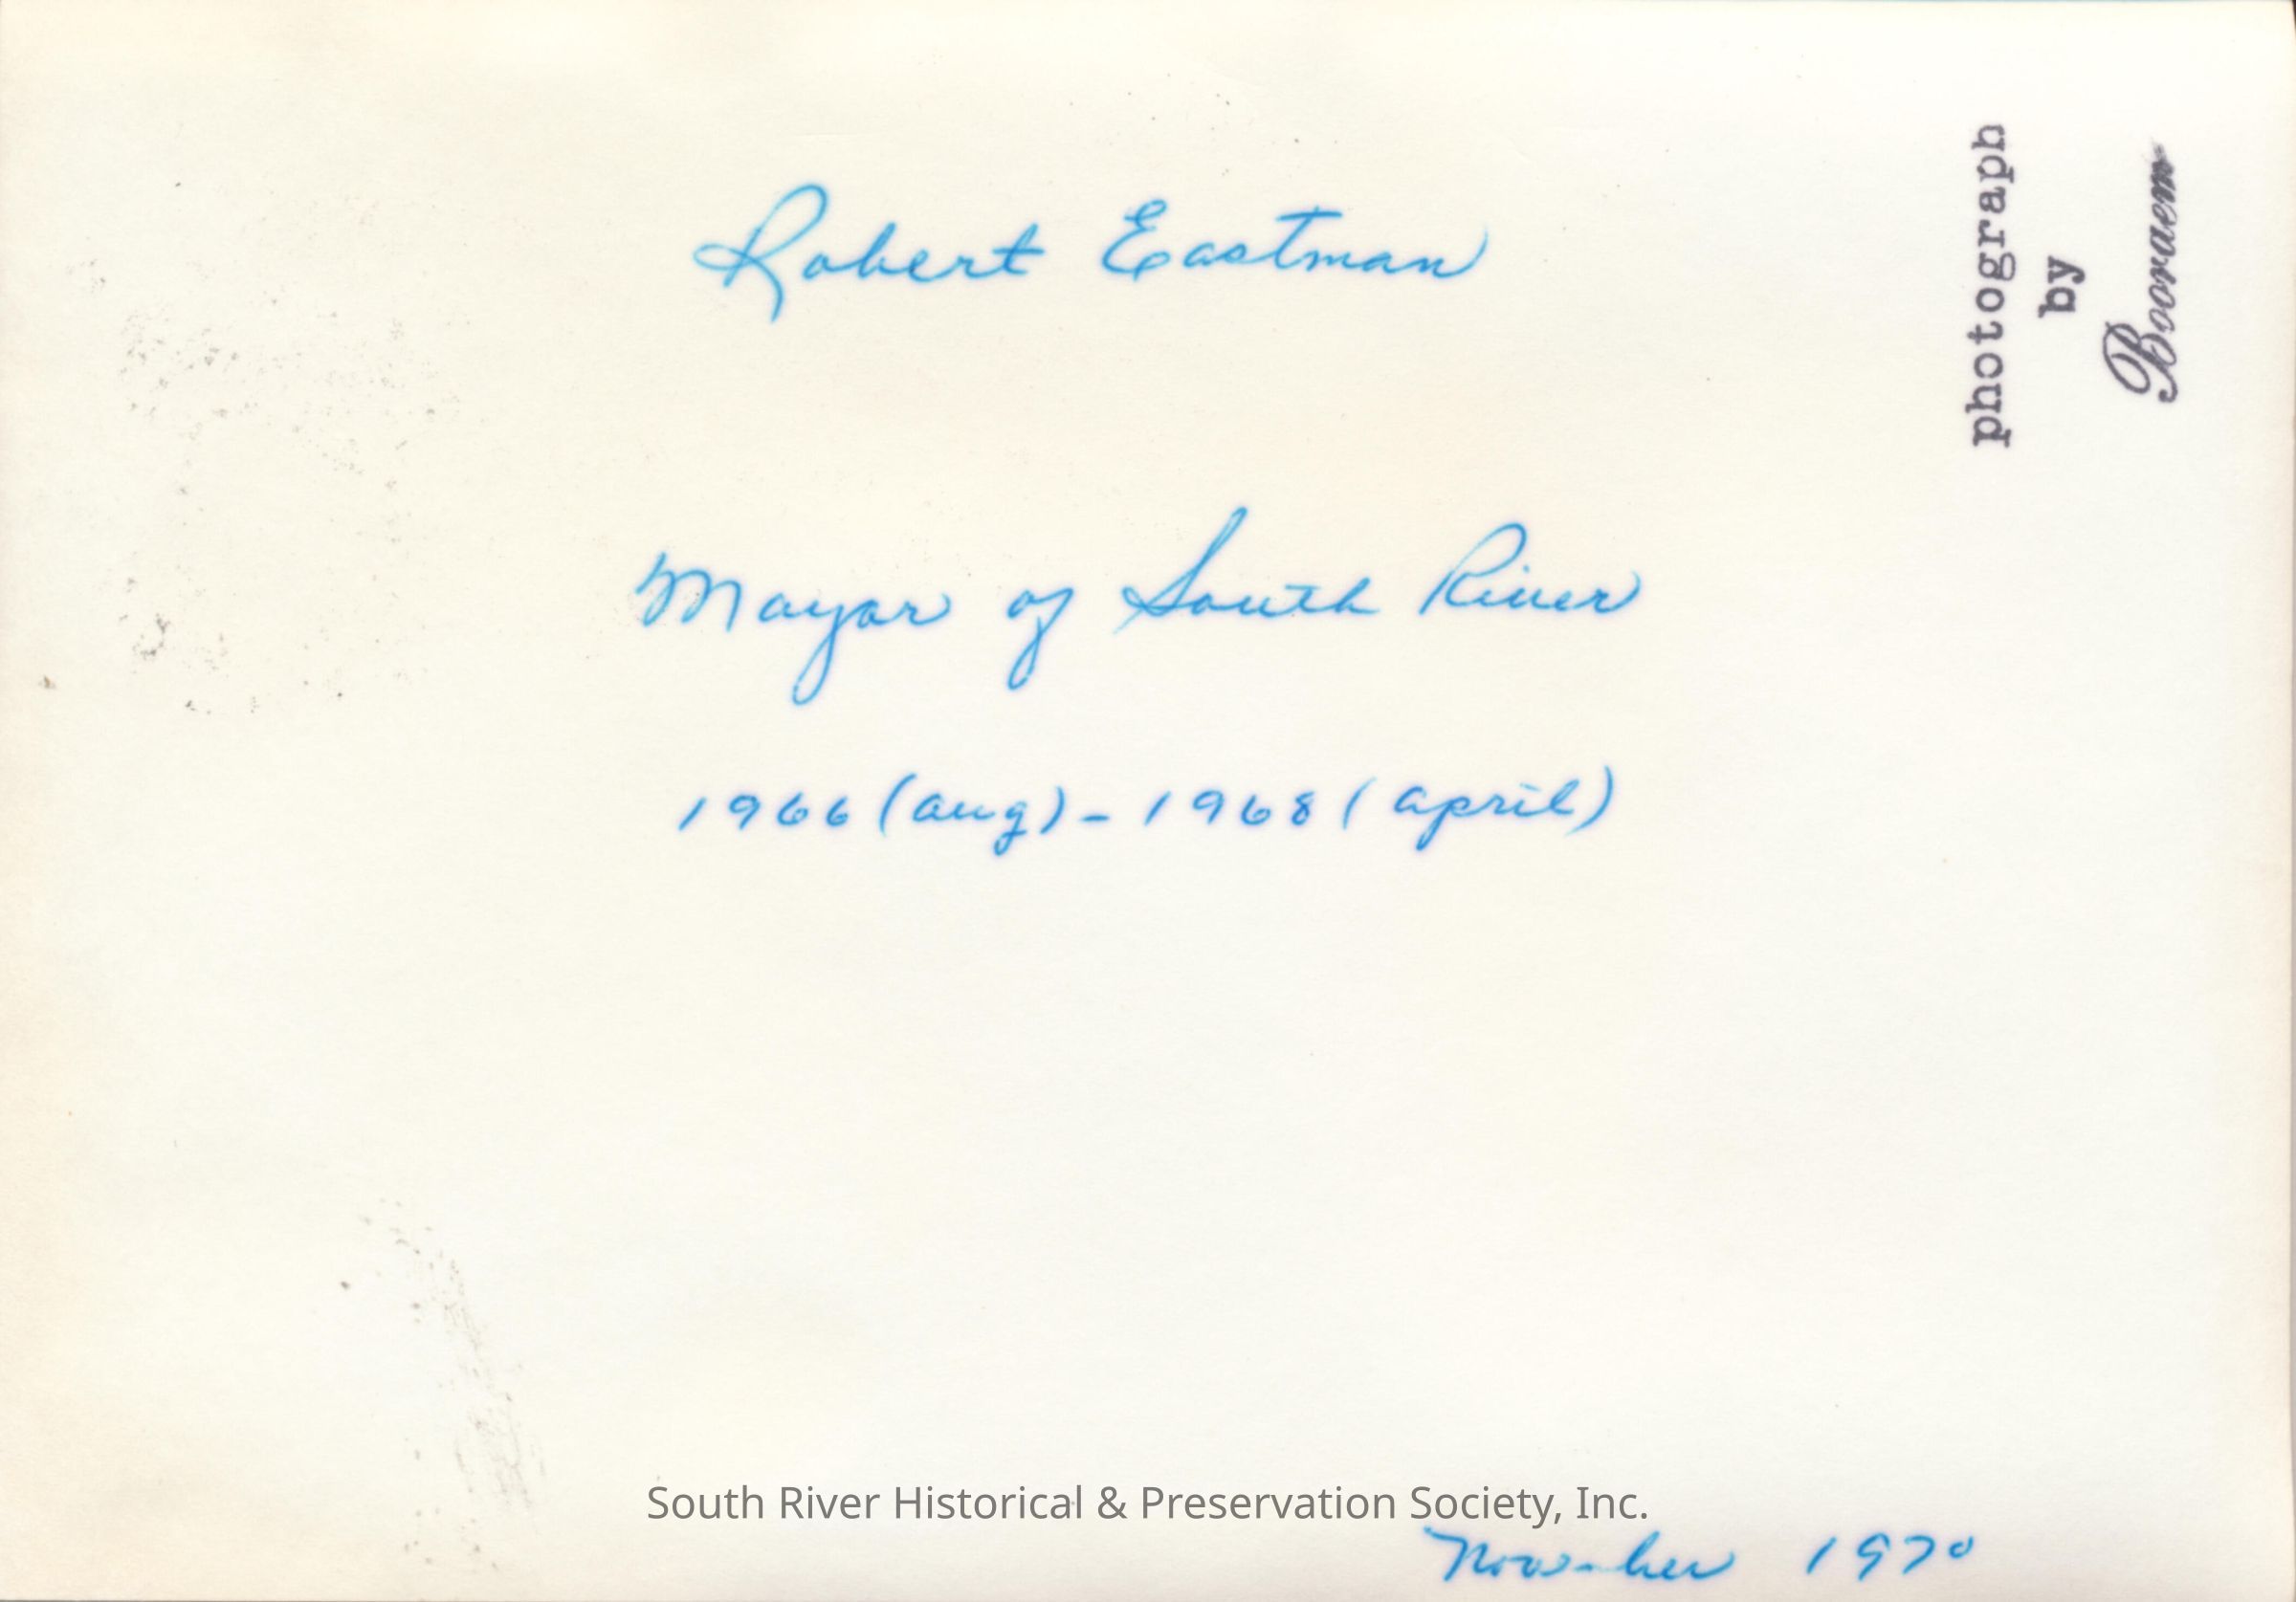 Robert Eastman
photograph
by
Booraem
Mayor of South River
1966 (aug) - 1968 (april)
South River Historical & Preservation Society, Inc.
November 1970